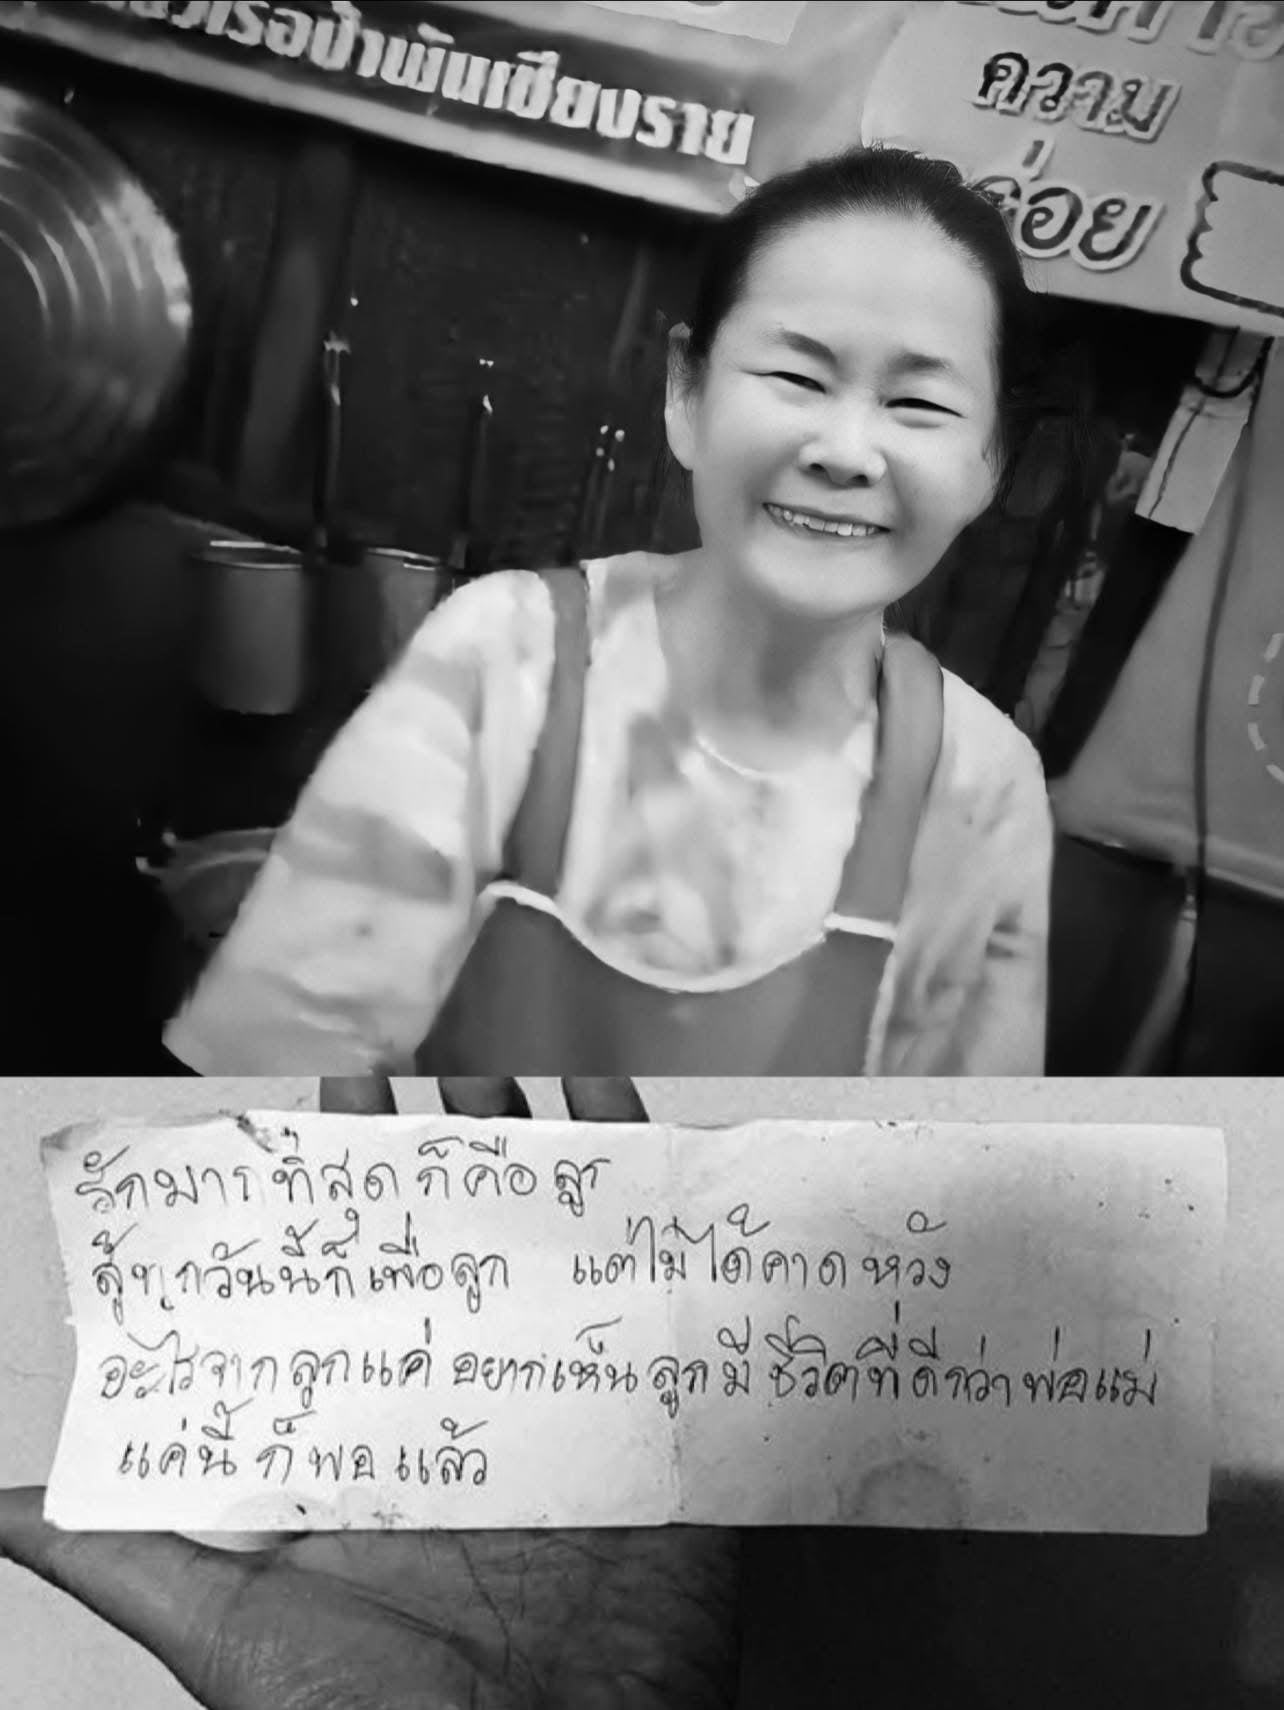 เรือป้าพันเชียงราย
ความ
ร่อย
รักมากที่สุด ก็คือ ลูก
สู้ทุกวันนี้ก็เพื่อลูก แต่ไม่ได้คาดหวัง
อะไรจากลูกแค่ อยากเห็น ลูกมี ชีวิตที่ดีกว่าพ่อแม่
แค่นี้ ก็พอ แล้ว